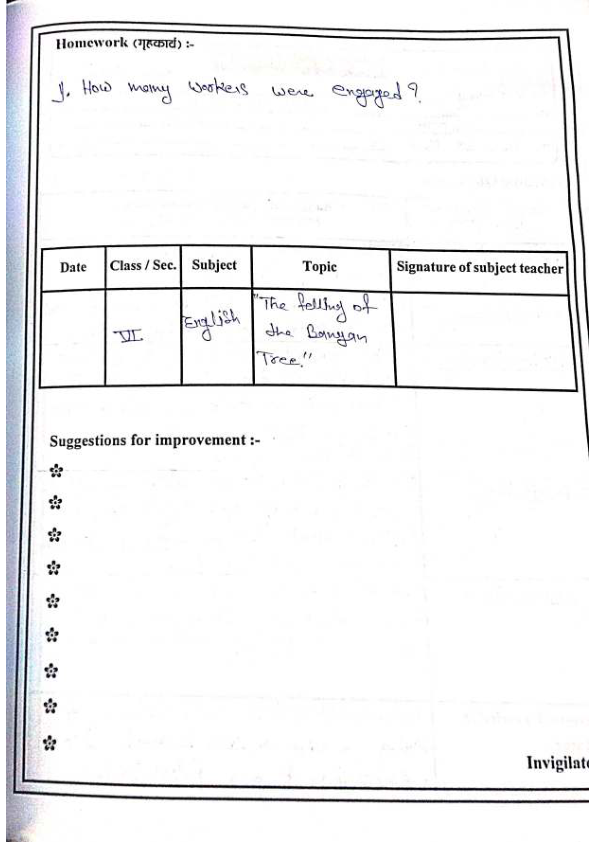 Homework (गृहकार्य) :-
1. How many workers were engaged ?
Date Class / Sec. Subject Topic Signature of subject teacher
VI English "The felling of
the Banyan
Tree."
Suggestions for improvement :-
Invigilato